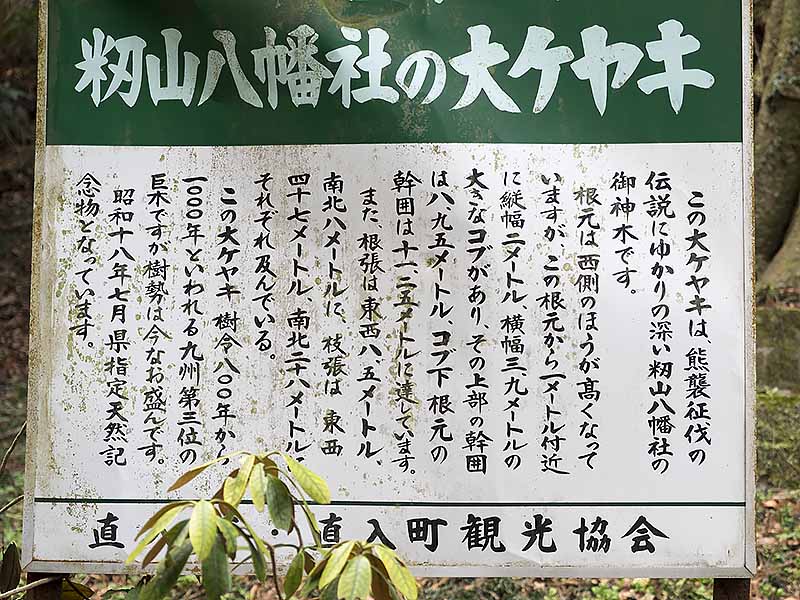 籾山八幡社の大ケヤキ
この大ケヤキは、熊襲征伐の
伝説にゆかりの深い籾山八幡社の
御神木です。
根元は西側のほうが高くなって
いますが、この根元から一メートル付近
に縦幅二メートル、横幅三.九メートルの
大きなコブがあり、その上部の幹囲
は八.九五メートル、コブ下根元の
幹囲は十一.二五メートルに達しています。
また、根張は東西八.五メートル、
南北八メートルに、枝張は東西
四十七メートル、南北二十八メートル
それぞれ及んでいる。
この大ケヤキ樹令八〇〇年から
一〇〇〇年といわれる九州第三位の
巨木ですが樹勢は今なお盛んです。
昭和十八年七月県指定天然記
念物となっています。
直・直入町観光協会